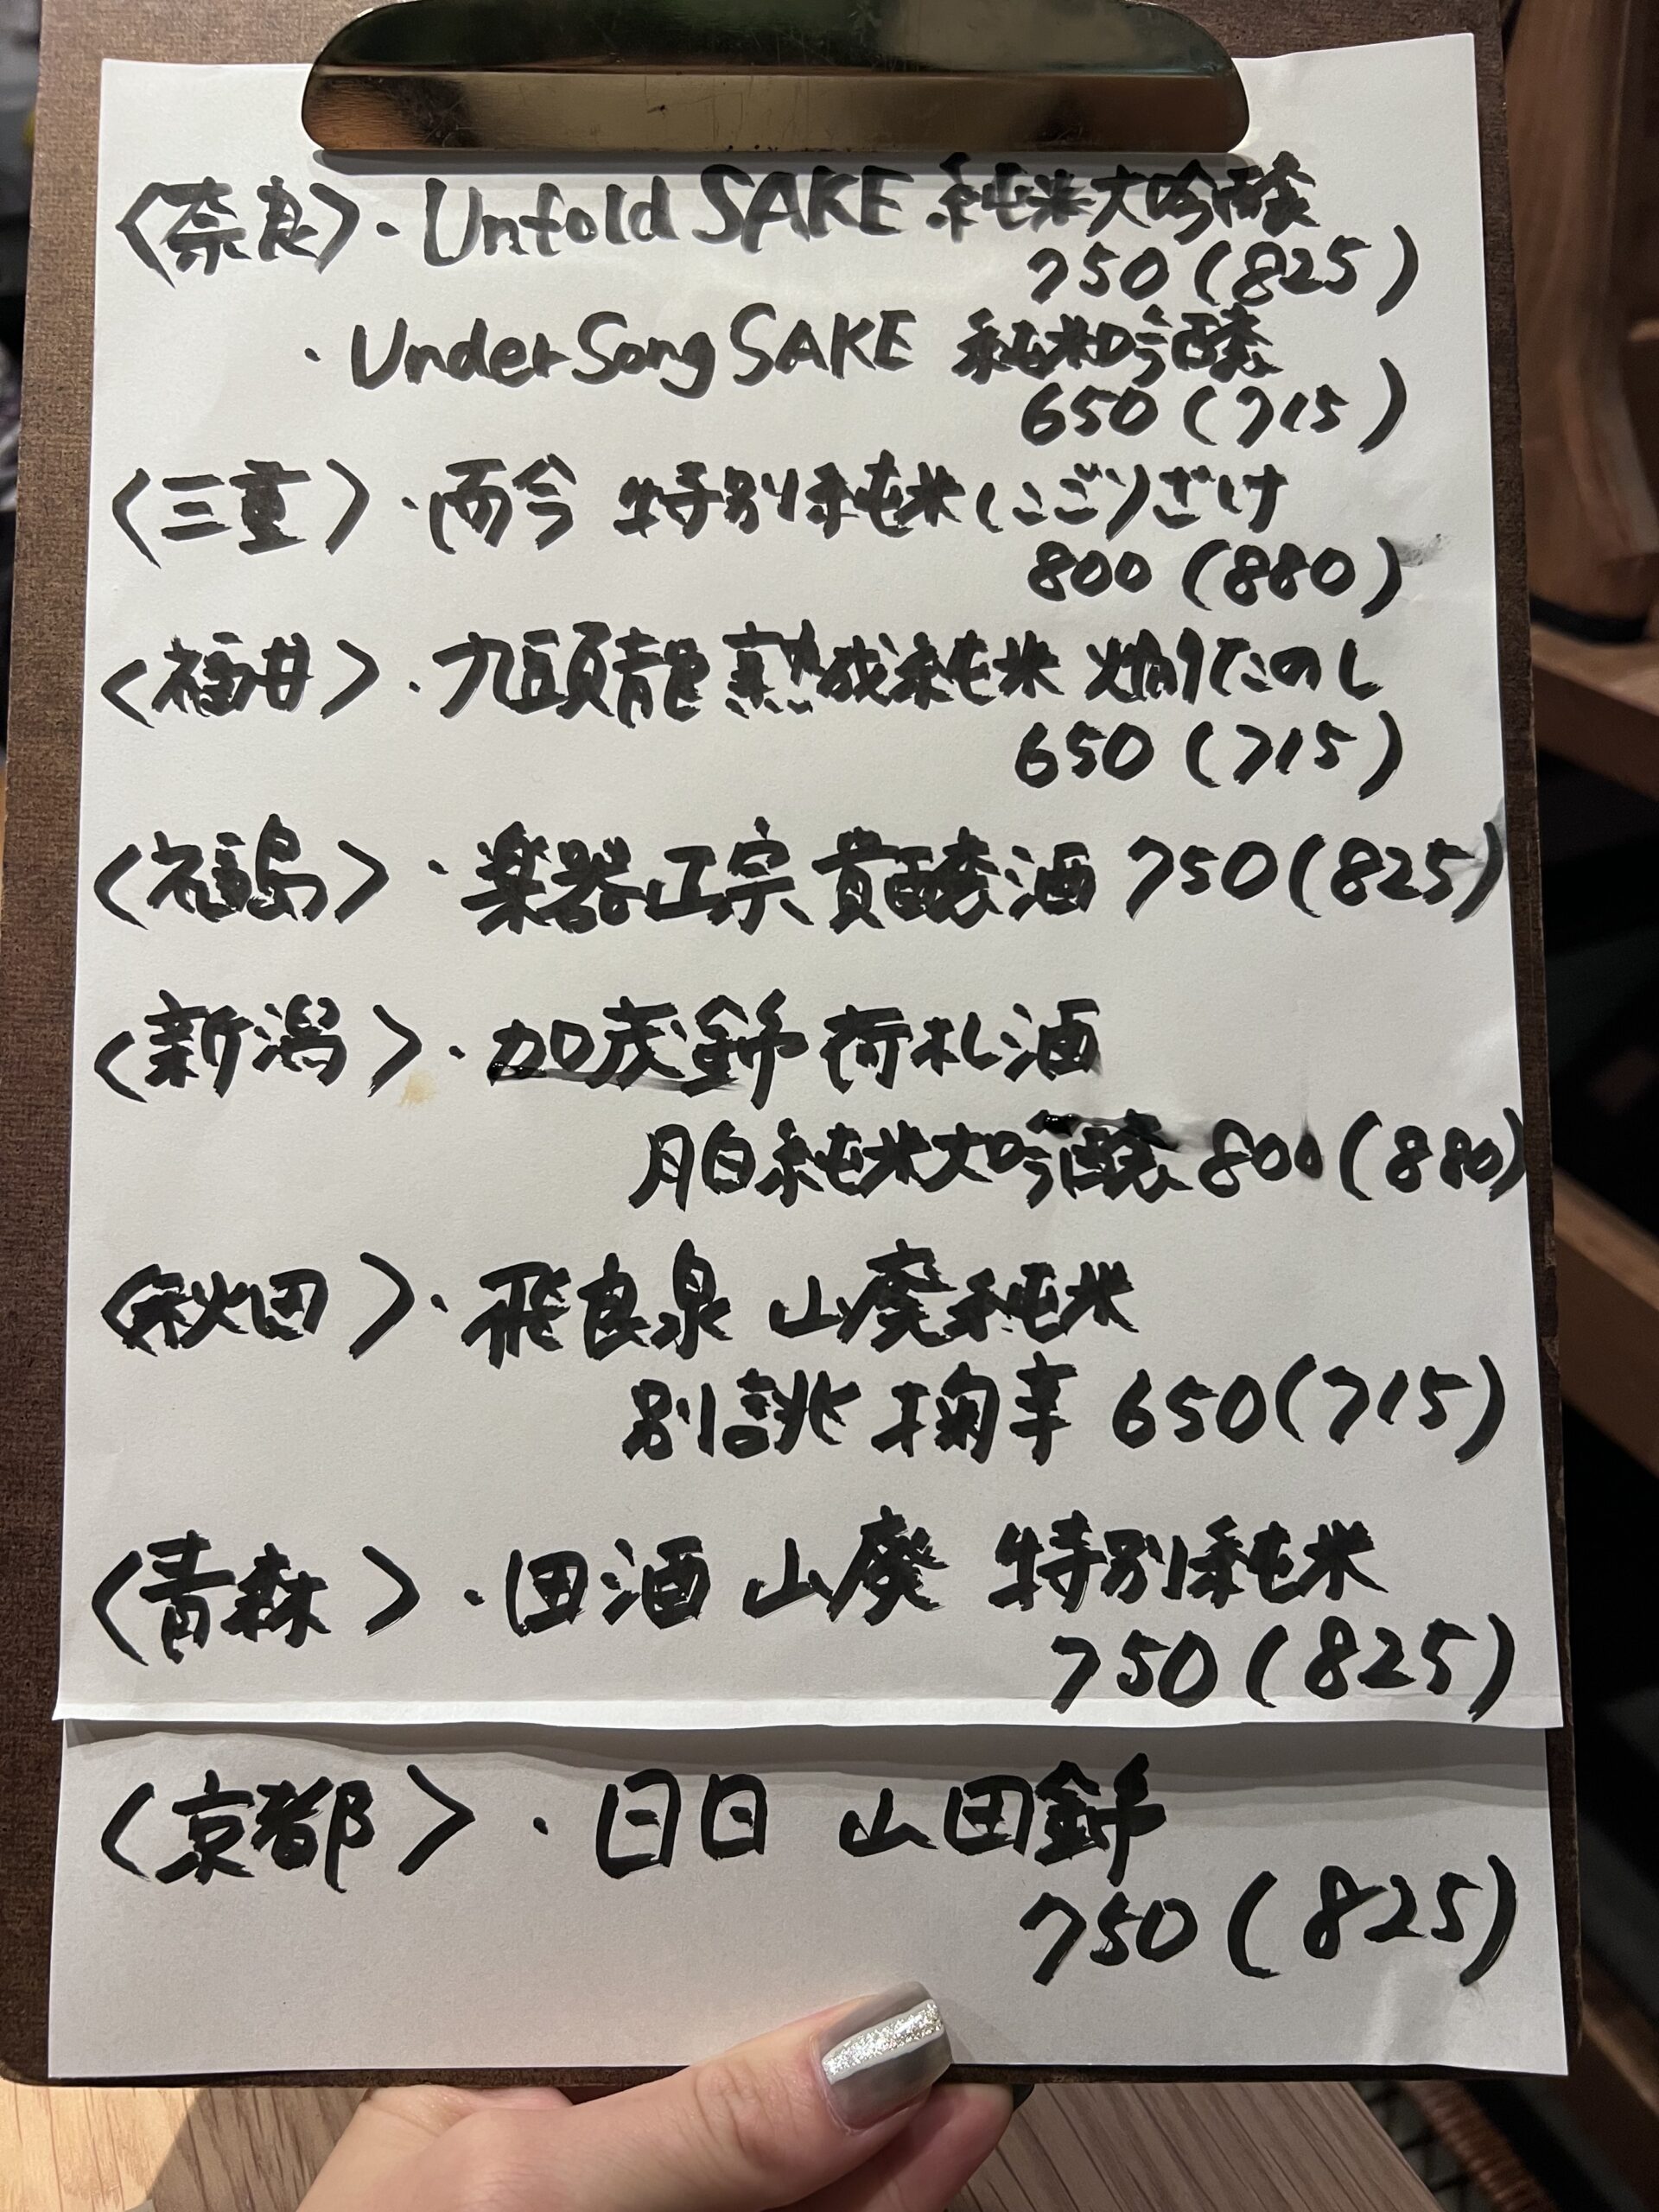 〈奈良〉・Unfold SAKE 純米大吟醸
750(825)
・UnderSong SAKE 純米吟醸
650(715)
〈三重〉・而今 特別純米にごりざけ
800(880)
〈福井〉・九頭龍 熟成純米 燗たのし
650(715)
〈福島〉・楽器正宗 貴醸酒 750(825)
〈新潟〉・加茂錦 荷札酒
月白純米大吟醸 800(880)
〈秋田〉・飛良泉 山廃純米
別誂 掬辛 650(715)
〈青森〉・田酒 山廃 特別純米
750(825)
〈京都〉・日日 山田錦
750(825)